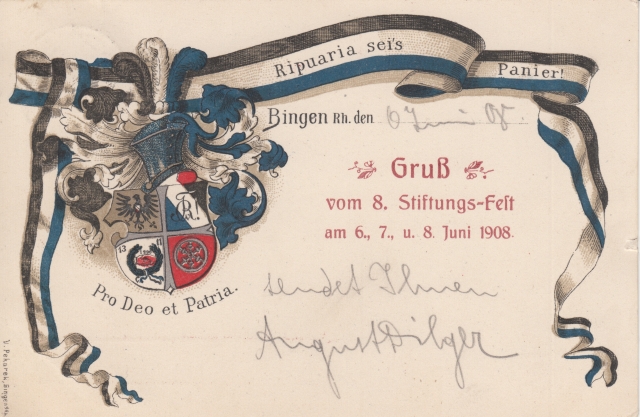 Ripuaria sei's Panier!
Bingen Rh. den 6 Juni 08.
Gruß
vom 8. Stiftungs-Fest
am 6., 7., u. 8. Juni 1908.
sendet Ihnen
August Dilger
Pro Deo et Patria.
V. Pokorek, Bingen